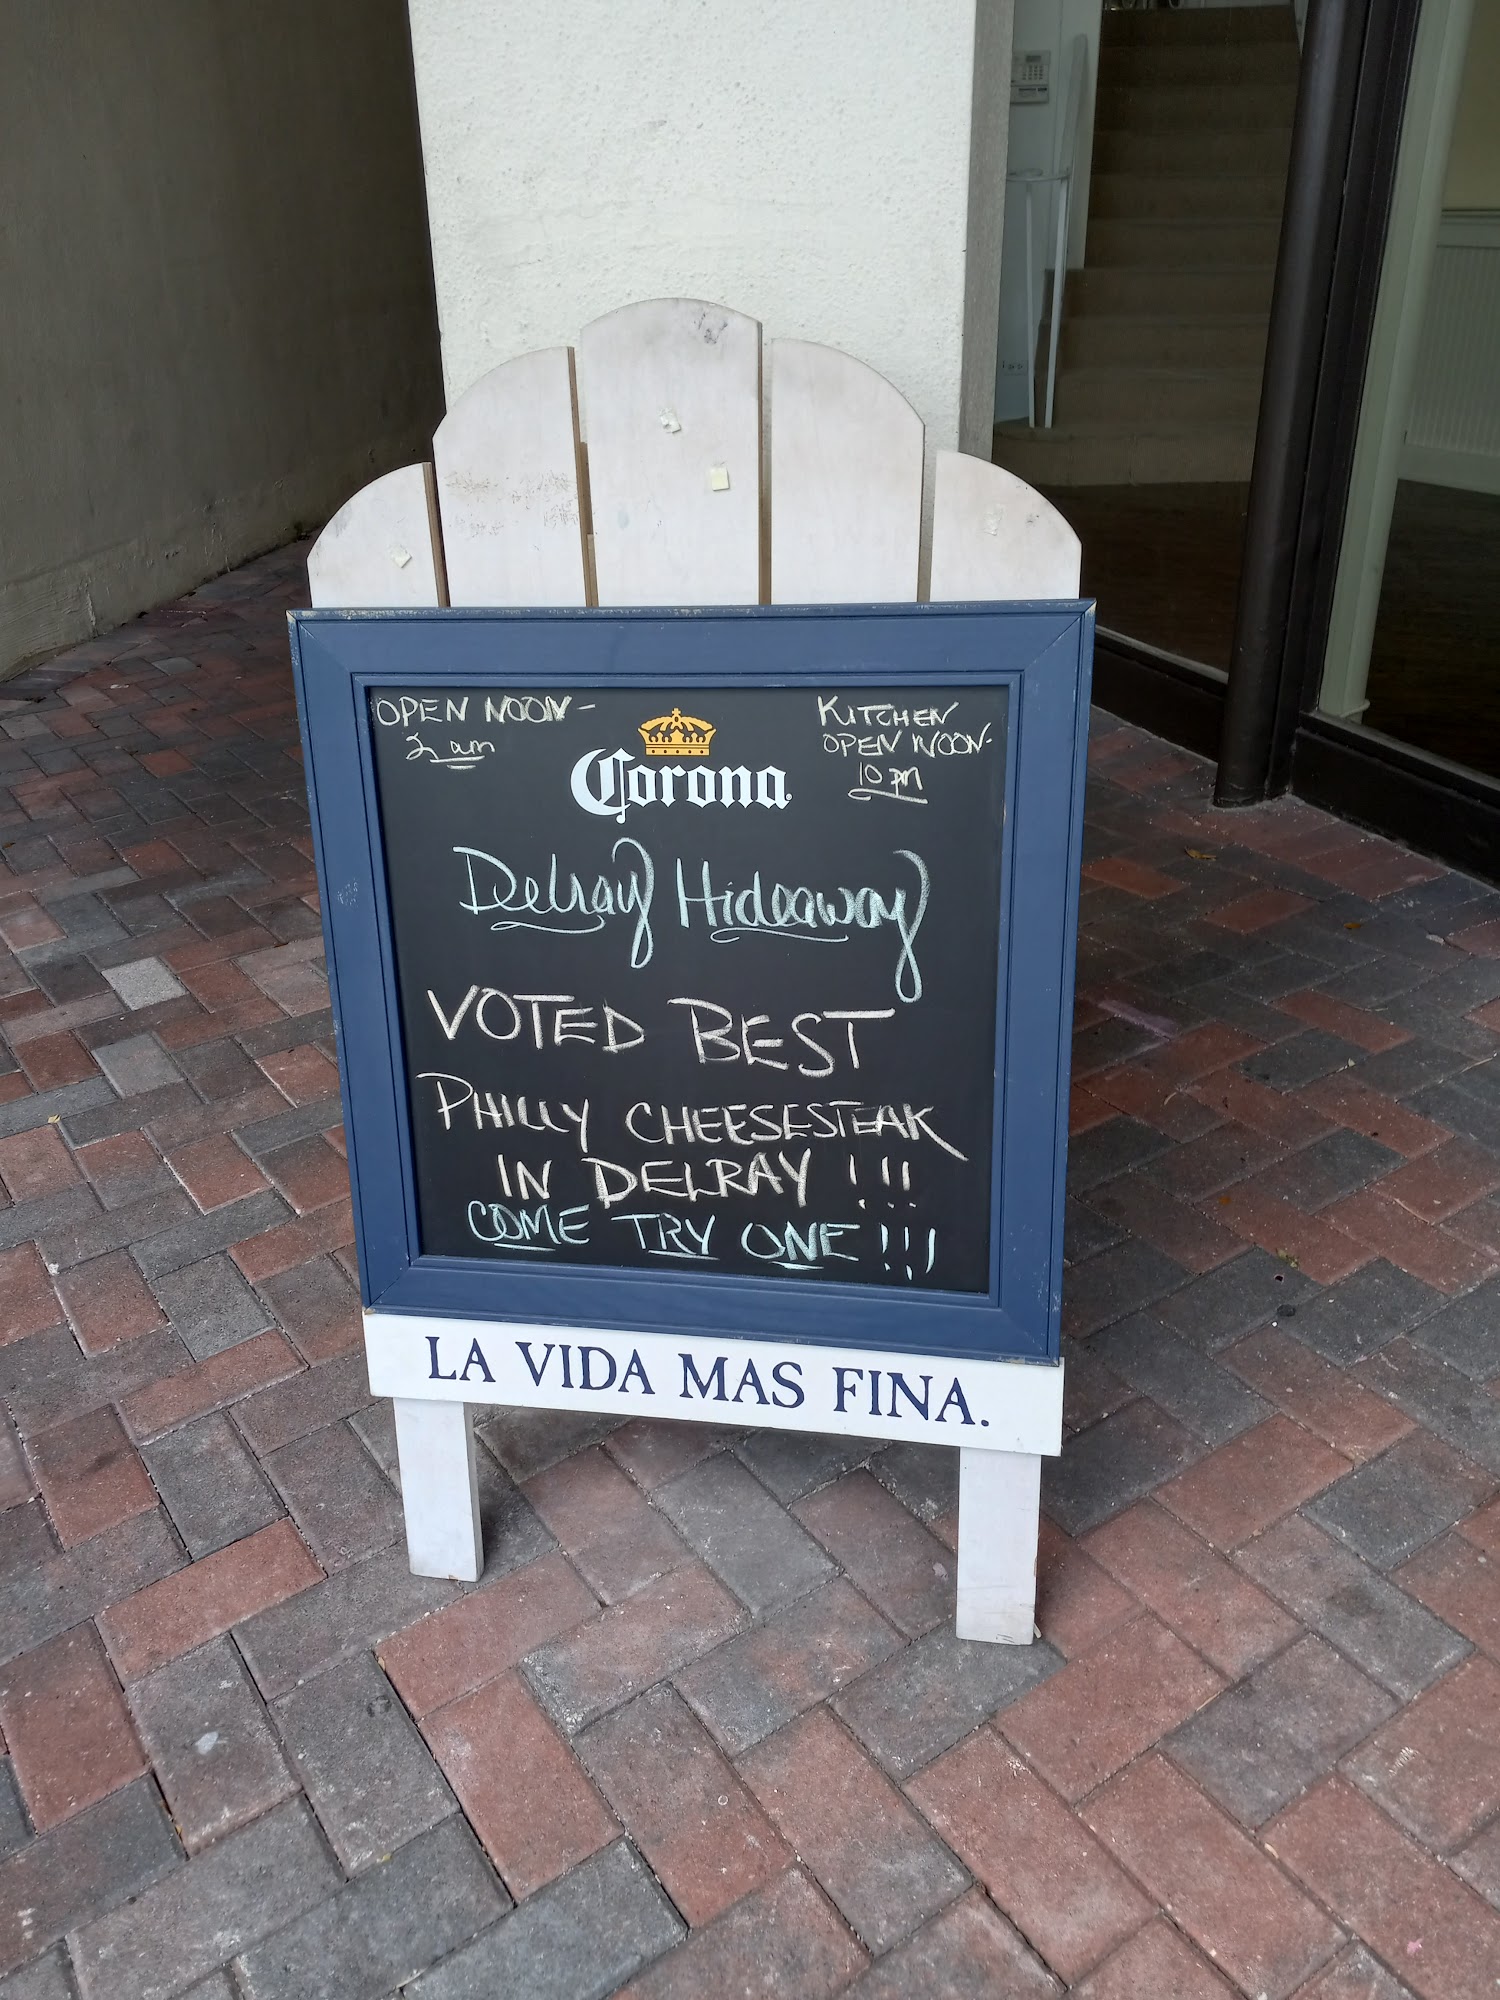 OPEN NOON-
2 am
KITCHEN
OPEN NOON-
10 pm
Corona
Delray Hideaway
VOTED BEST
PHILLY CHEESESTEAK
IN DELRAY !!!
COME TRY ONE!!!
LA VIDA MAS FINA.